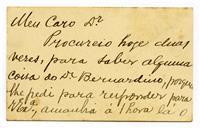 Meu Caro Dr
Procurei-o hoje duas
vezes, para saber alguma
coisa do Dr. Bernardino, porque
lhe pedi para responder para
amanhã á 1 hora lá o